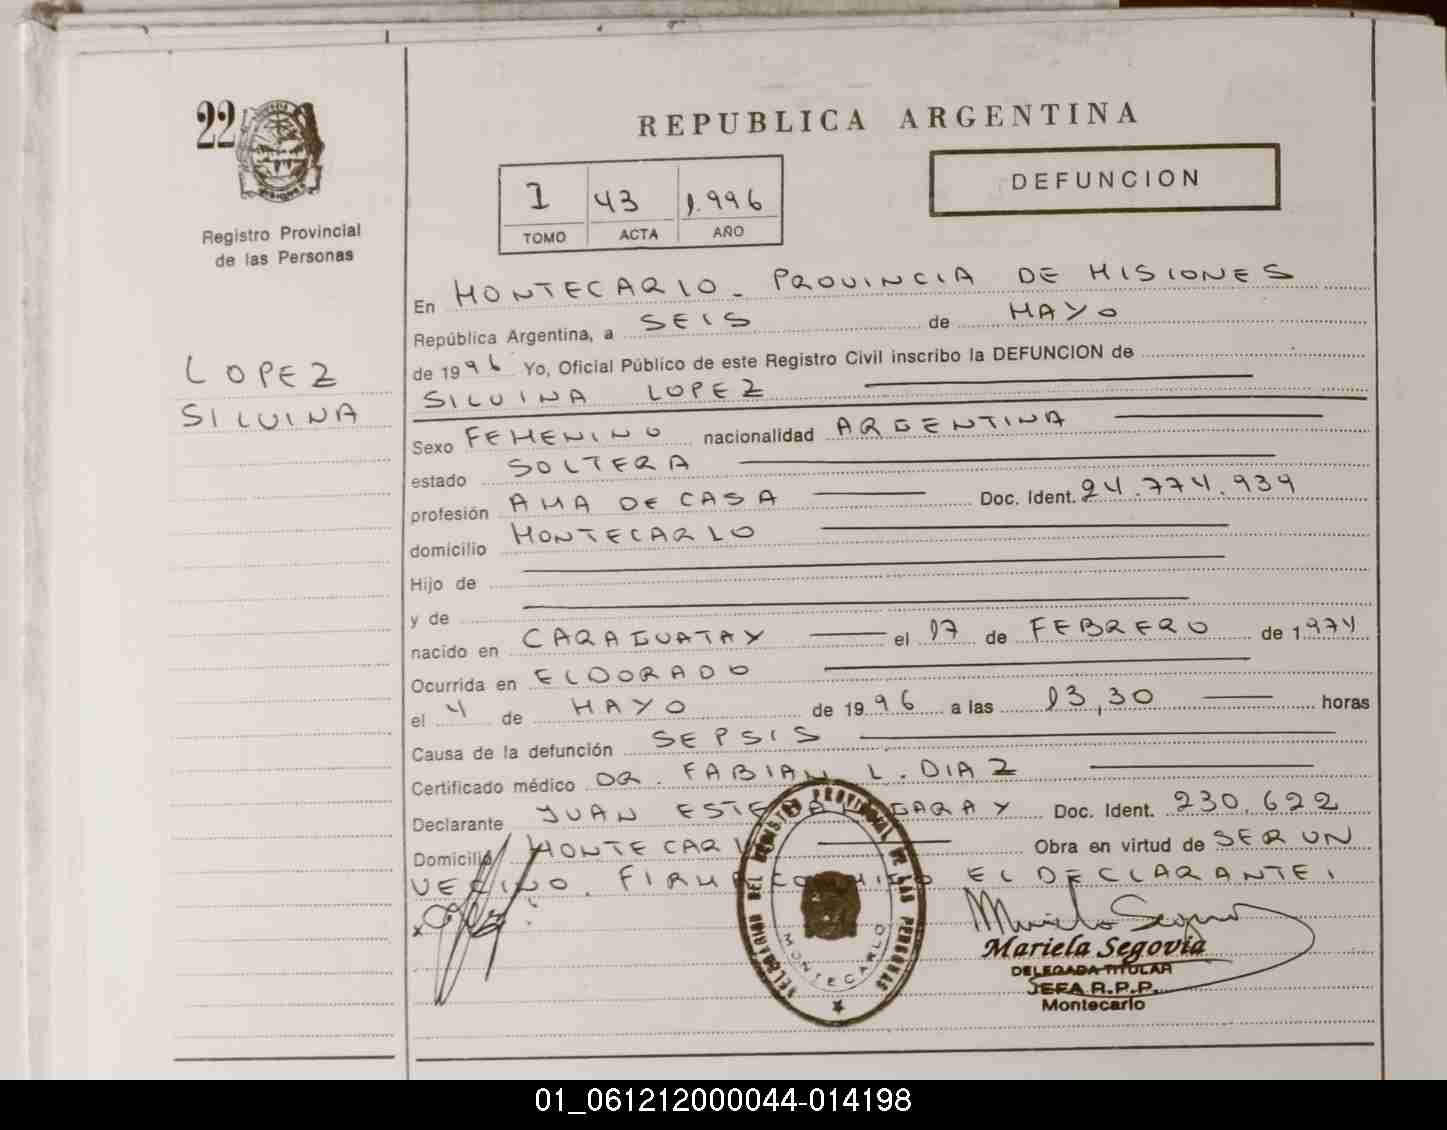 22
Registro Provincial
de las Personas
LOPEZ
SILVINA
REPUBLICA ARGENTINA
I 43 1.996
TOMO ACTA AÑO
DEFUNCION
En MONTECARLO - PROVINCIA DE MISIONES
República Argentina, a SEIS de MAYO
de 1996 Yo, Oficial Público de este Registro Civil inscribo la DEFUNCION de
SILVINA LOPEZ
Sexo FEMENINO nacionalidad ARGENTINA
estado SOLTERA
profesión AMA DE CASA Doc. Ident. 24.774.939
domicilio MONTECARLO
Hijo de
y de
nacido en CARAGUATAY el 17 de FEBRERO de 1.974
Ocurrida en ELDORADO
el 4 de MAYO de 1996 a las 13,30 horas
Causa de la defunción SEPSIS
Certificado médico DR. FABIAN L. DIAZ
Declarante JUAN ESTEBAN GARAY Doc. Ident. 230.622
Domicilio MONTECARLO Obra en virtud de SER UN
VECINO. FIRMA CONMIGO EL DECLARANTE.
DEL REGISTRO PROVINCIAL DE LAS PERSONAS
MONTECARLO
Mariela Segovia
DELEGADA TITULAR
JEFA R.P.P.
Montecarlo
01_061212000044-014198